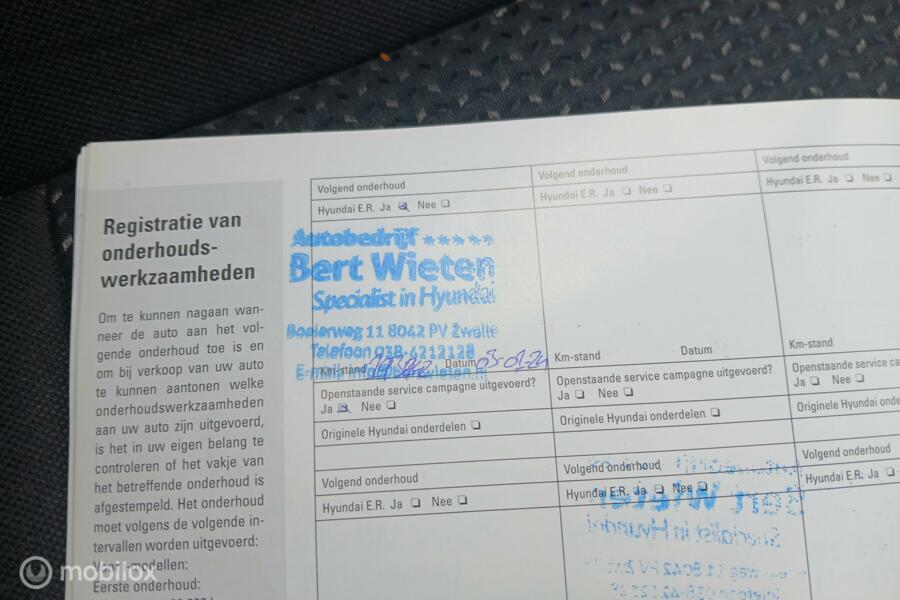 Registratie van
onderhouds-
werkzaamheden
Om te kunnen nagaan wan-
neer de auto aan het vol-
gende onderhoud toe is en
om bij verkoop van uw auto
te kunnen aantonen welke
onderhoudswerkzaamheden
aan uw auto zijn uitgevoerd,
is het in uw eigen belang te
controleren of het vakje van
het betreffende onderhoud is
afgestempeld. Het onderhoud
moet volgens de volgende in-
tervallen worden uitgevoerd:
modellen:
Eerste onderhoud:
Volgend onderhoud
Hyundai E.R. Ja Nee
Autobedrijf *****
Bert Wieten
Specialist in Hyundai
11 8042 PV Zwolle
Telefoon 038-4212128
Km-stand Datum 05-01-24
Openstaande service campagne uitgevoerd?
Ja Nee
Originele Hyundai onderdelen
Volgend onderhoud
Hyundai E.R. Ja Nee
Volgend onderhoud
Hyundai E.R. Ja Nee
Km-stand Datum
Openstaande service campagne uitgevoerd?
Ja Nee
Originele Hyundai onderdelen
Volgend onderhoud
Hyundai E.R. Ja Nee
Volgend onderhoud
Hyundai E.R. Ja Nee
Km-stand
Openstaande service ca
Ja Nee
Originele Hyundai onde
Volgend onderhoud
Hyundai E.R. Ja
mobilox